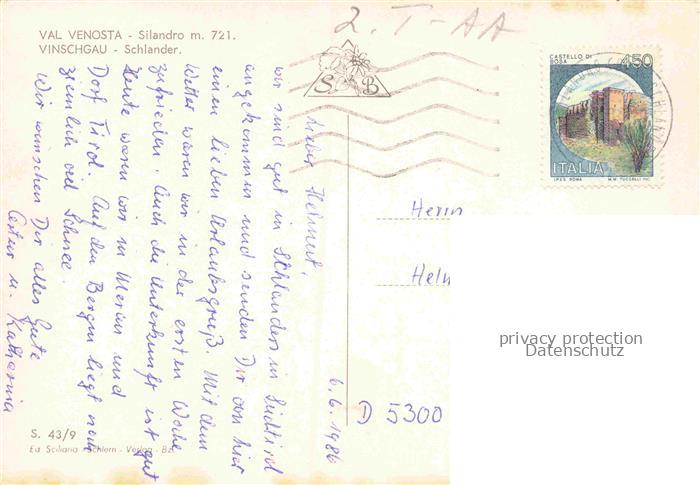 VAL VENOSTA - Silandro m. 721.
VINSCHGAU - Schlander.
2. T-AA
S B
CASTELLO DI
BOSA
450
ITALIA
I.P.Z.S. ROMA
M.M. TUCCELLI INC.
6.6.1986
Lieber Helmut,
wir sind gut in Schlanders in Südtirol
angekommen und senden Dir von hier
einen lieben Urlaubsgruß. Mit dem
Wetter waren wir in der ersten Woche
zufrieden. Auch die Unterkunft ist gut
Heute waren wir in Meran und
Dorf Tirol. Auf den Bergen liegt noch
ziemlich viel Schnee.
Wir wünschen Dir alles Gute
Artur u. Katharina
Herrn
Helm
D 5300
privacy protection
Datenschutz
S. 43/9
Ed Sciliana - Schlern - Verlag - Bz.